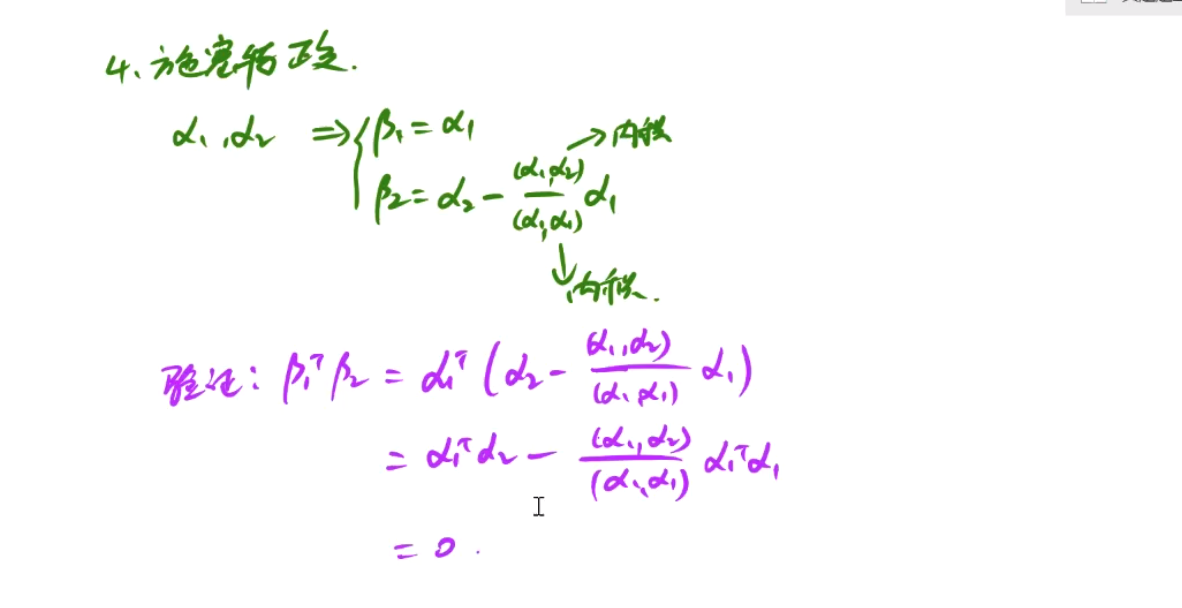 4、施密特正交.
α₁,α₂ ⇒ { β₁ = α₁
β₂ = α₂ - (α₁,α₂)/(α₁,α₁) α₁
→内积
↓内积.
验证: β₁ᵀβ₂ = α₁ᵀ(α₂ - (α₁,α₂)/(α₁,α₁) α₁)
= α₁ᵀα₂ - (α₁,α₂)/(α₁,α₁) α₁ᵀα₁
= 0.